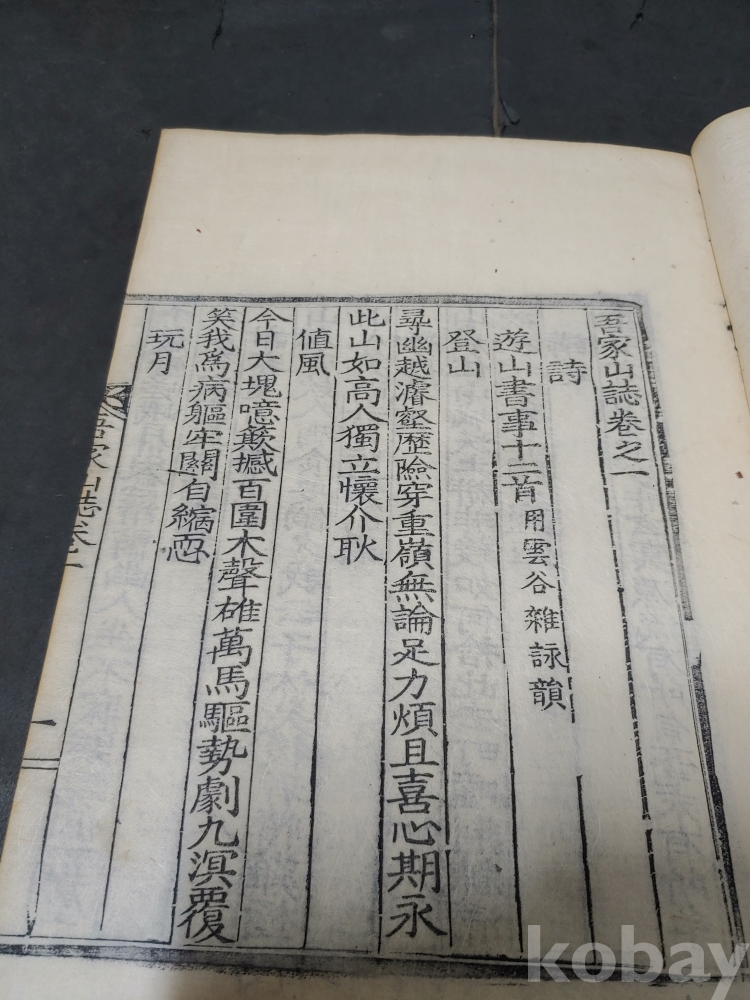 吾家山誌卷之一
詩
遊山書事十二首 用雲谷雜詠韻
登山
尋幽越濬壑歷險穿重嶺無論足力煩且喜心期永
此山如高人獨立懷介耿
値風
今日大塊噫簸撼百圍木聲雄萬馬驅勢劇九溟覆
笑我爲病軀牢關自縮恧
玩月
吾家山誌卷之一
一
kobay